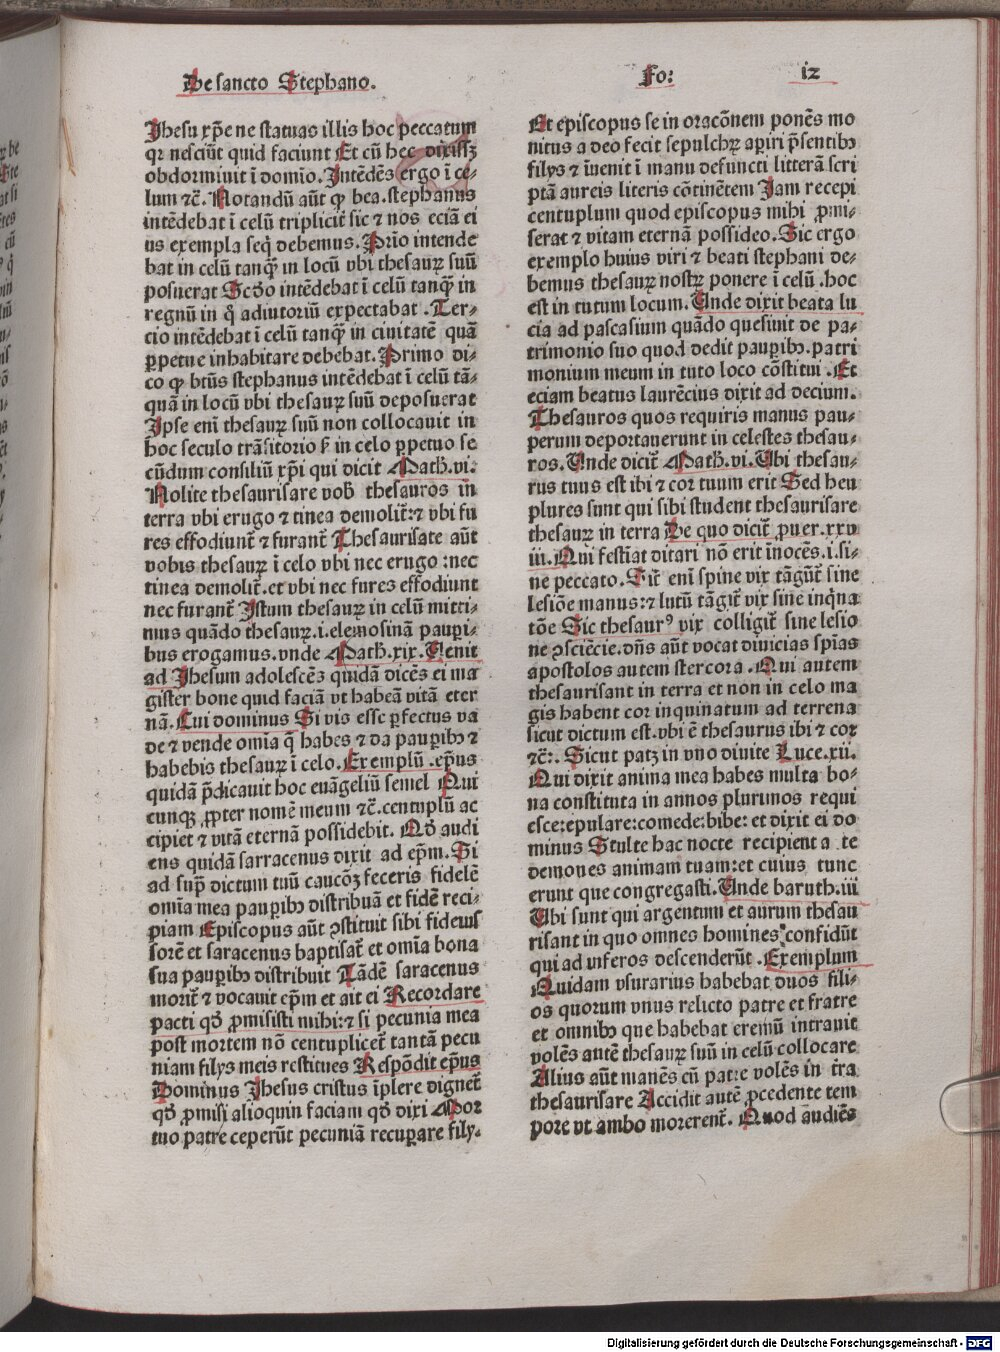 De sancto Stephano.
Fo:
ix
Jhesu xp̄e ne statuas illis hoc peccatum
qꝛ nesciūt quid faciunt Et cū hec dixissꝫ
obdormiuit ī domīo. Intēdēs ergo ī ce⸗
lum ⁊c̄. Notandū aūt ꝙ bea. stephanus
intēdebat ī celū triplicit̄ sic ⁊ nos eciā ei
us exempla seq̄ debemus. Prīo intende
bat in celū tanq̄ꝫ in locū vbi thesauꝝ suū
posuerat Scd̄o intēdebat ī celū tanq̄ꝫ in
regnū in q̄ adiutoriū expectabat. Ter⸗
cio intēdebat ī celū tanq̄ꝫ in ciuitatē quā
ꝑpetue inhabitare debebat. Primo di⸗
co ꝙ bt̄us stephanus intēdebat ī celū tā⸗
quā in locū vbi thesauꝝ suū deposuerat
Ipse enī thesauꝝ suū non collocauit in
hoc seculo trāsitorio s̄ in celo ꝑpetuo se
cūdum consiliū xp̄i qui dicit Math̄.vi.
Nolite thesaurisare vob̄ thesauros in
terra vbi erugo ⁊ tinea demolit̄:⁊ vbi fu
res effodiunt̄ ⁊ furant̄ Thesaurisate aūt
vobis thesauꝝ ī celo vbi nec erugo :nec
tinea demolit̄.et vbi nec fures effodiunt
nec furant̄ Istum thesauꝝ in celū mitti⸗
mus quādo thesauꝝ.i.elemosinā pauꝑi⸗
bus erogamus.vnde Math̄.xix. Uenit
ad Jhesum adolescēs quidā dicēs ei ma
gister bone quid faciā vt habeā vitā eter
nā. Cui dominus Si vis esse ꝑfectus va
de ⁊ vende omīa q̄ habes ⁊ da pauꝑibꝫ ⁊
habebis thesauꝝ ī celo. Exemplū .ep̄us
quidā p̄dicauit hoc euāgeliū semel Qui
cunqꝫ ꝓpter nomē meum ⁊c̄.centuplū ac
cipiet ⁊ vitā eternā possidebit. Qd̄ audi
ens quidā sarracenus dixit ad ep̄m. Si
ad sup̄ dictum tuū caucōꝫ feceris fidelē
omīa mea pauꝑibꝫ distribuā et fidē reci⸗
piam Episcopus aūt ꝯstituit sibi fideius
sorē et saracenus baptisat̄ et omīa bona
sua pauꝑibꝫ distribuit Tādē saracenus
morit̄ ⁊ vocauit ep̄m et ait ei Recordare
pacti qd̄ ꝓmisisti mihi:⁊ si pecunia mea
post mortem nō centuplicet̄ tantā pecu
niam filijs meis restitues Respōdit ep̄us
Dominus Jhesus cristus īplere dignet̄
qd̄ ꝓmisi alioquin faciam qd̄ dixi Mor
tuo patre ceperūt pecuniā recuꝑare filij.
Et episcopus se in oracōnem ponēs mo
nitus a deo fecit sepulchꝝ aꝑiri p̄sentibꝫ
filijs ⁊ īuenit ī manu defuncti litterā scri
ptā aureis literis cōtinētem Jam recepi
centuplum quod episcopus mihi ꝓmi⸗
serat ⁊ vitam eternā possideo. Sic ergo
exemplo huius viri ⁊ beati stephani de⸗
bemus thesauꝝ nostꝝ ponere ī celū .hoc
est in tutum locum. Unde dixit beata lu
cia ad pascasium quādo quesiuit de pa⸗
trimonio suo quod dedit pauꝑibꝫ.patri
monium meum in tuto loco cōstitui .Et
eciam beatus laurēcius dixit ad decium.
Thesauros quos requiris manus pau⸗
perum deportauerunt in celestes thesau⸗
ros. Unde dicit̄ Math̄.vi. Ubi thesau⸗
rus tuus est ibi ⁊ cor tuum erit Sed heu
plures sunt qui sibi student thesaurisare
thesauꝝ in terra De quo dicit̄ ꝓuer.xxv
iii. Qui festiat ditari nō erit īnocēs.i.si⸗
ne peccato. Sit̄ enī spine vix tāgūt̄ sine
lesiōe manus:⁊ lutū tāgit̄ vix sine inq̄na
tōe Sic thesaurꝰ vix colligit̄ sine lesio
ne ꝯsciēcie.dn̄s aūt vocat diuicias sp̄ias
apostolos autem stercora. Qui autem
thesaurisant in terra et non in celo ma
gis habent cor inquinatum ad terrena
sicut dictum est.vbi ē thesaurus ibi ⁊ cor
⁊c̄:. Sicut patꝫ in vno diuite Luce.xii.
Qui dixit anima mea habes multa bo⸗
na constituta in annos plurimos requi
esce:epulare:comede:bibe: et dixit ei do
minus Stulte hac nocte recipient a te
demones animam tuam:et cuius tunc
erunt que congregasti. Unde baruth.iii
Ubi sunt qui argentum et aurum thesau
risant in quo omnes homines confidūt
qui ad inferos descenderūt . Exemplum
Quidam vsurarius habebat duos fili⸗
os quorum vnus relicto patre et fratre
et omnibꝫ que habebat eremū intrauit
volēs autē thesauꝝ suū in celū collocare
Alius aūt manēs cū patre volēs in tra
thesaurisare Accidit autē ꝓcedente tem
pore vt ambo morerent̄. Quod audiēs
Digitalisierung gefördert durch die Deutsche Forschungsgemeinschaft - DFG